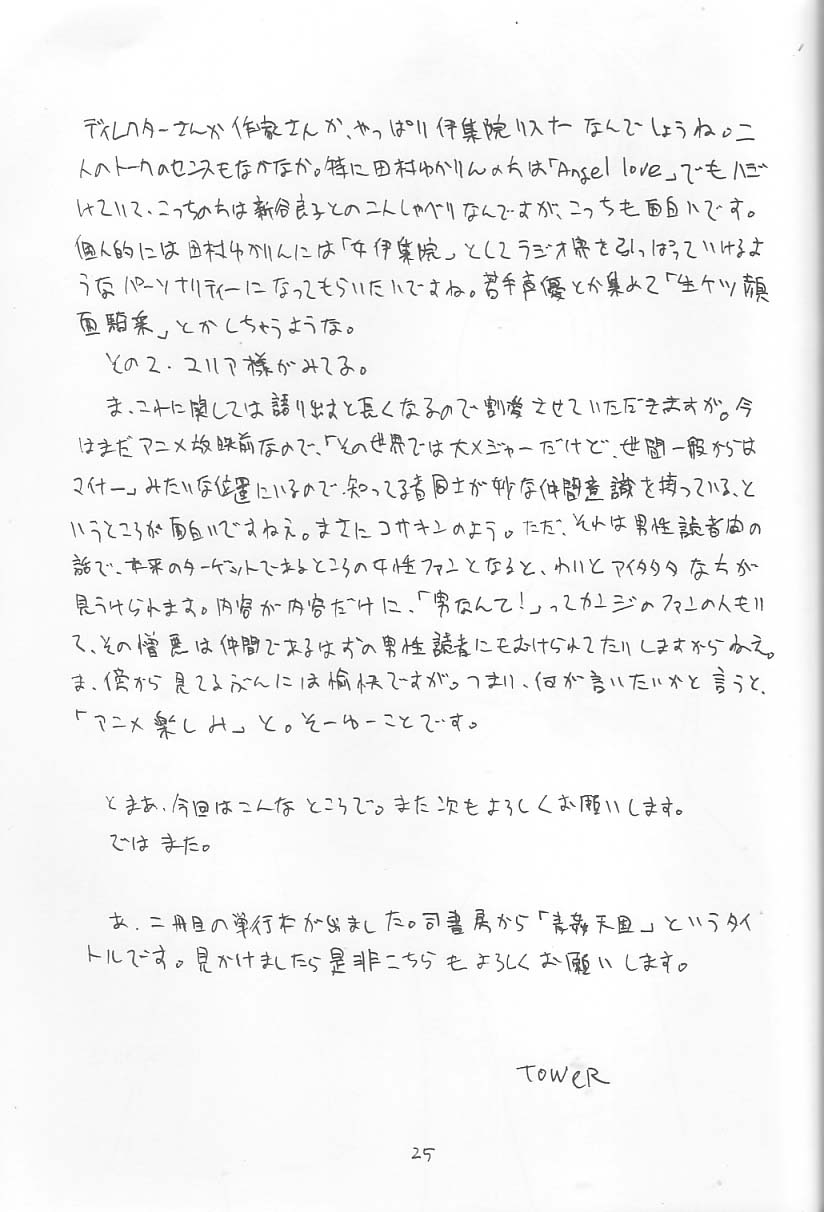 ディレクターさんか作家さんか、やっぱり伊集院リスナーなんでしょうね。二
人のトークのセンスもなかなか。特に田村ゆかりんの方は「Angel love」でもハジ
けていて、こっちの方は新谷良子との二人しゃべりなんですが、こっちも面白いです。
個人的には田村ゆかりんには「女伊集院」としてラジオ界を引っぱっていけるよ
うなパーソナリティーになってもらいたいですね。若手声優とか集めて「生ケツ顔
面騎乗」とかしちゃうような。
その2. マリア様がみてる。
ま、これに関しては語り出すと長くなるので割愛させていただきますが。今
はまだアニメ放映前なので、「その世界では大メジャーだけど、世間一般からは
マイナー」みたいな位置にいるので、知ってる者同士が妙な仲間意識を持っている、と
いうところが面白いですねえ。まさにコサキンのよう。ただ、それは男性読者間の
話で、本来のターゲットであるところの女性ファンとなると、わりとアイタタタな方が
見うけられます。内容が内容だけに、「男なんて!」ってカンジのファンの人もい
て、その憎悪は仲間であるはずの男性読者にもむけられてたりしますからねえ。
ま、傍から見てるぶんには愉快ですが。つまり、何が言いたいかと言うと、
「アニメ楽しみ」と。そーゆーことです。
とまあ、今回はこんなところで。また次もよろしくお願いします。
ではまた。
あ、二冊目の単行本が出ました。司書房から「青姦天国」というタイ
トルです。見かけましたら是非こちらもよろしくお願いします。
TOWeR
25